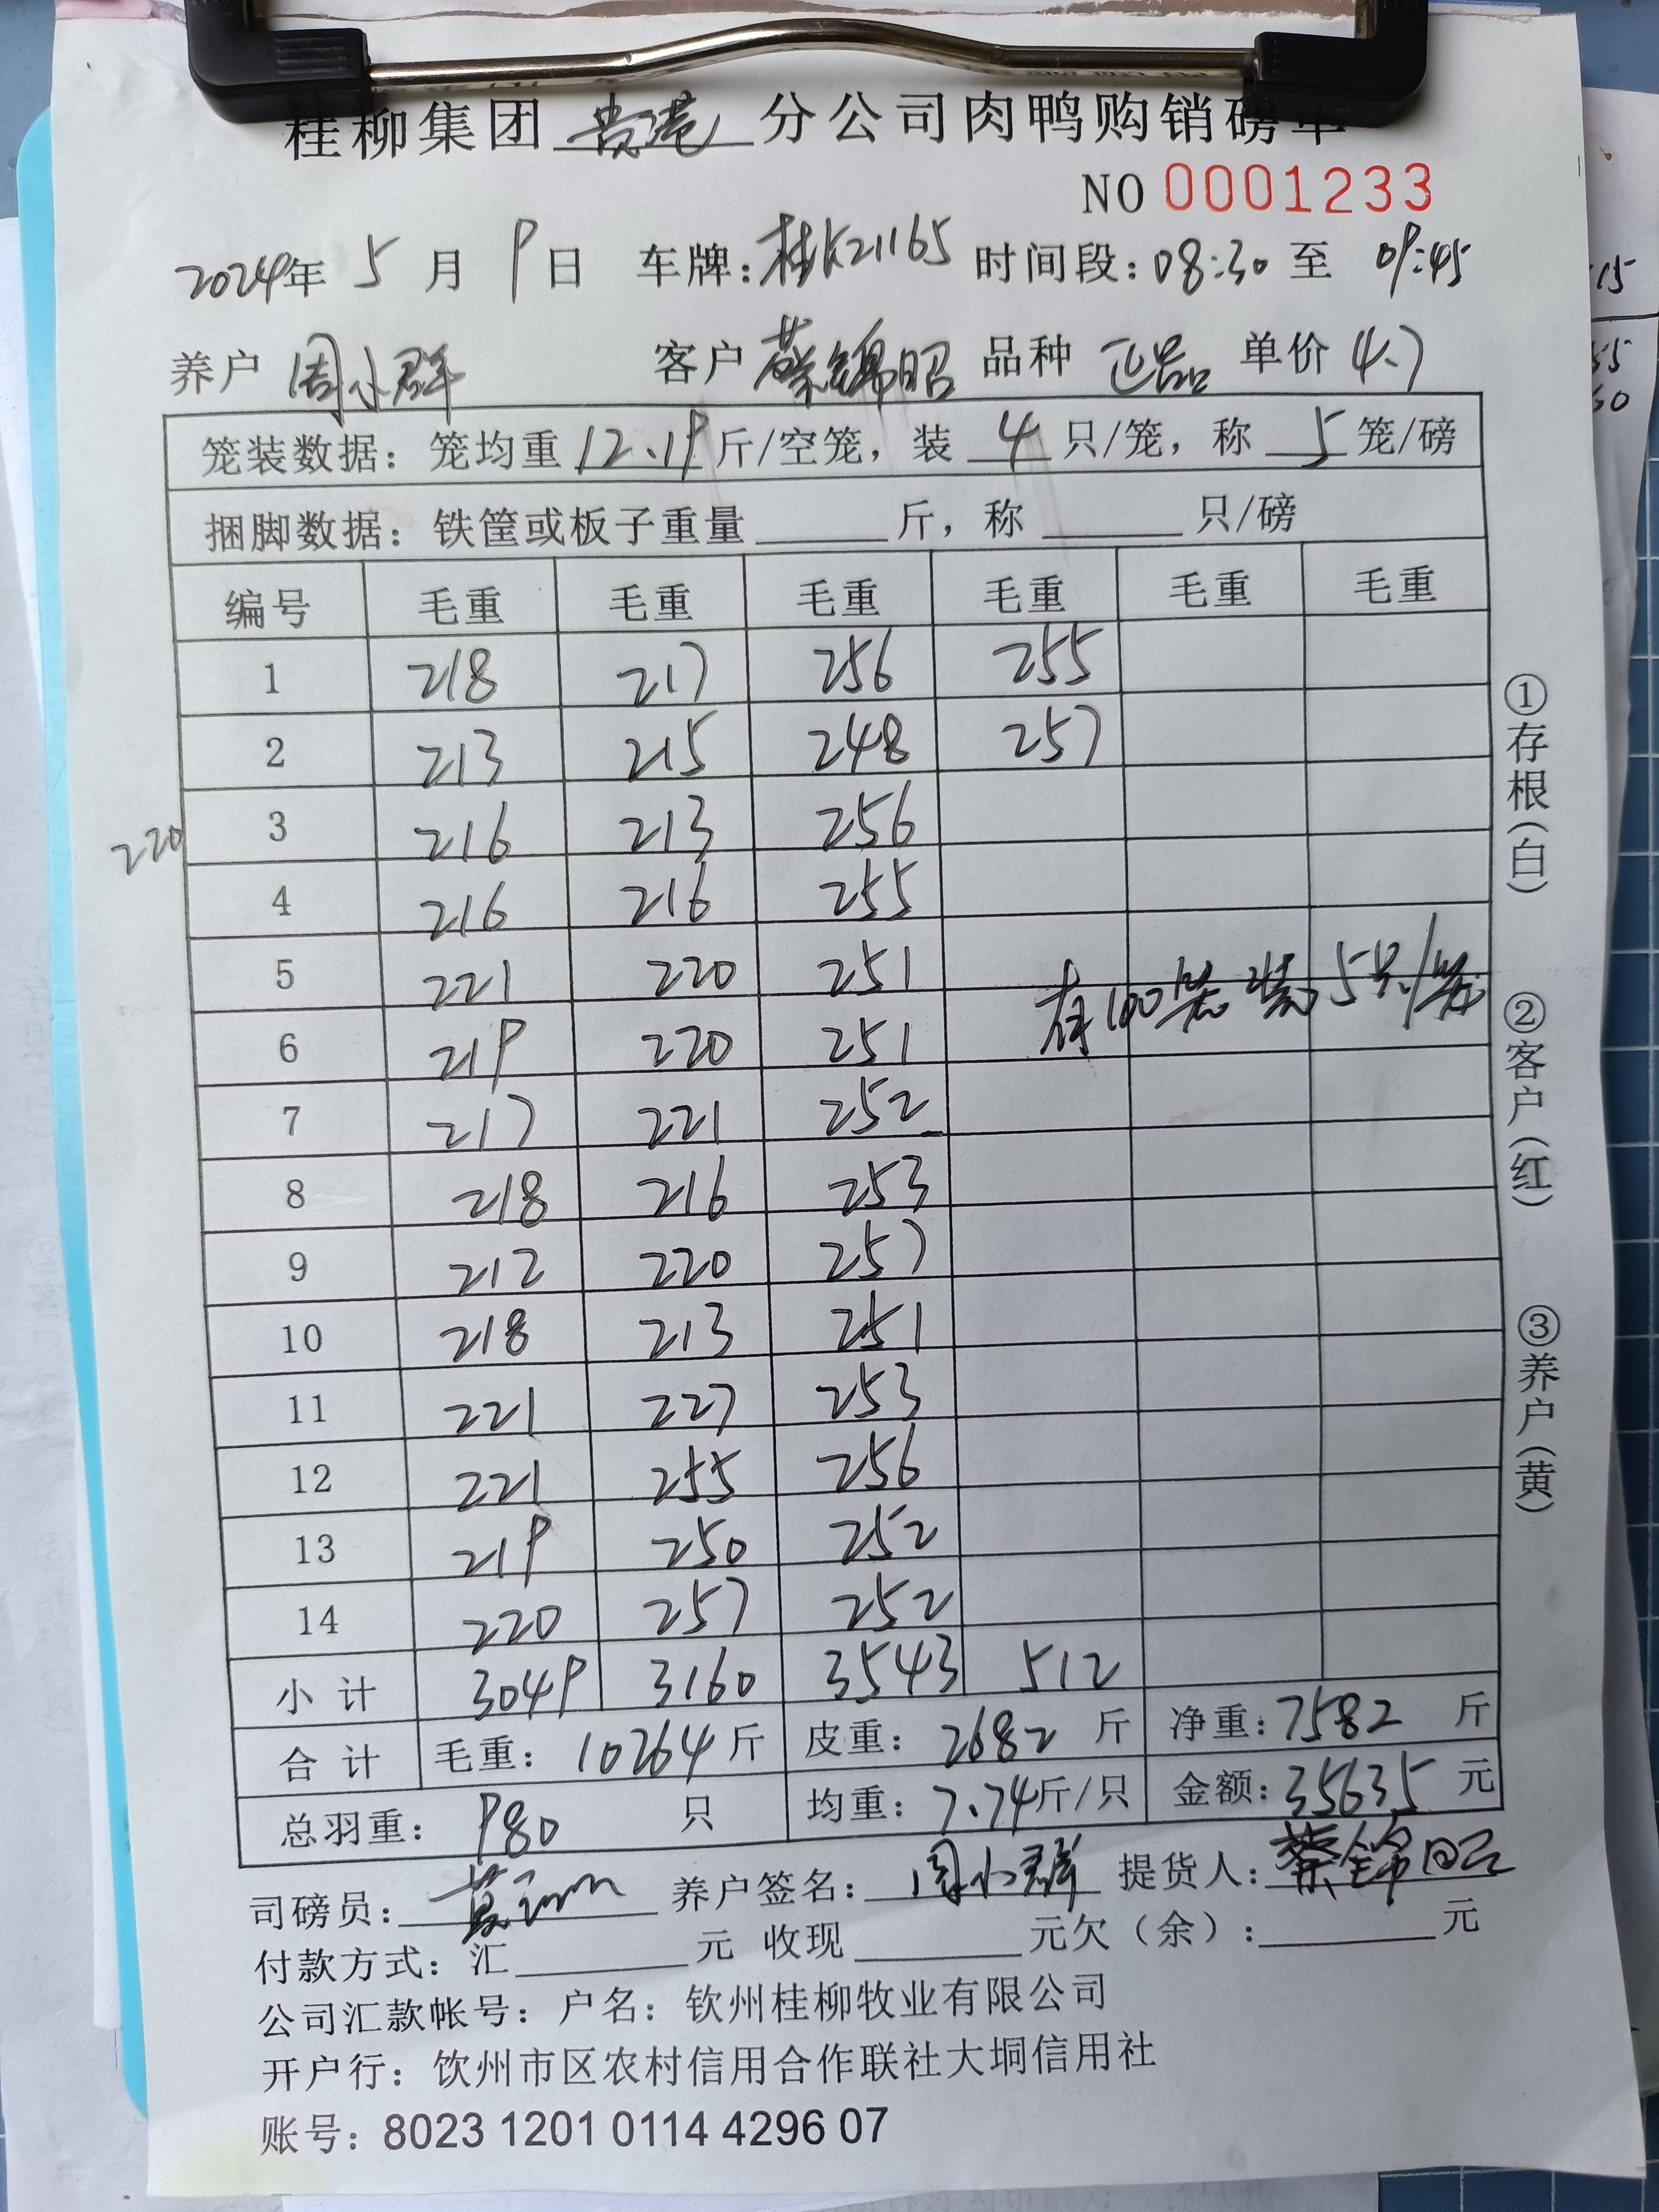 桂柳集团 贵港 分公司肉鸭购销磅单
NO 0001233
2024年 5 月 9 日 车牌:桂K21165 时间段:08:30 至 09:45
养户 周小群 客户 蔡锦昭 品种 正品 单价 4.7
笼装数据：笼均重 12.19 斤/空笼，装 4 只/笼，称 5 笼/磅
捆脚数据：铁筐或板子重量______斤，称______只/磅
编号 毛重 毛重 毛重 毛重 毛重 毛重
1 218 217 256 255
2 213 215 248 257
220
3 216 213 256
4 216 216 255
5 221 220 251
有100笼装5只/笼
6 219 220 251
7 217 221 252
8 218 216 253
9 212 220 257
10 218 213 251
11 221 227 253
12 221 255 256
13 219 250 252
14 220 257 252
小计 3049 3160 3543 512
合计 毛重：10264斤 皮重：2682 斤 净重:7582 斤
总羽重： 980 只 均重：7.74斤/只 金额:35635 元
司磅员: 黄 养户签名：周小群 提货人:蔡锦昭
付款方式：汇______元 收现______元欠（余）:______元
公司汇款帐号：户名：钦州桂柳牧业有限公司
开户行：钦州市区农村信用合作联社大垌信用社
账号：8023 1201 0114 4296 07
①存根(白)
②客户(红)
③养户(黄)
15
55
60